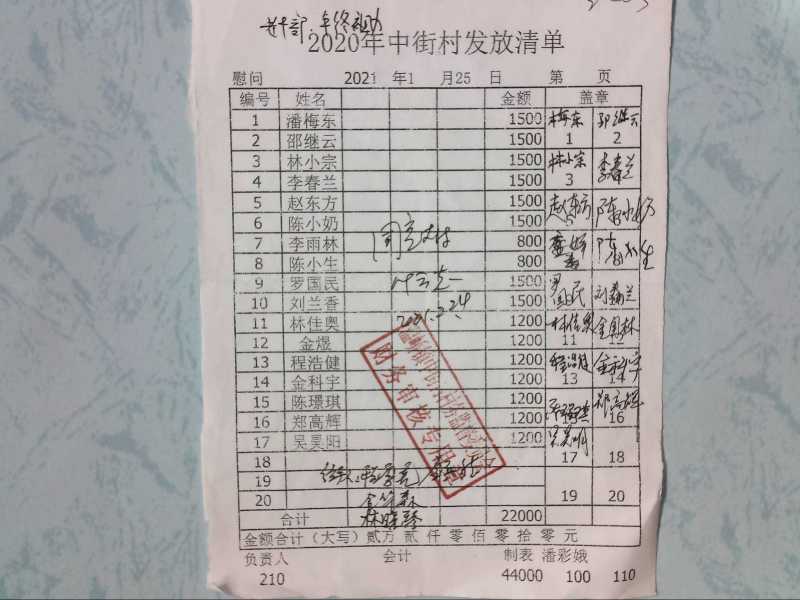 2020年中街村发放清单
慰问 2021 年1 月25 日 第 页
编号 姓名 金额 盖章
1 潘梅东 1500 梅东
2 邵继云 1500 1 2
3 林小宗 1500 林小宗 李春兰
4 李春兰 1500 3
5 赵东方 1500 赵东方
6 陈小奶 1500 5 陈小奶
7 李雨林 800
8 陈小生 800 陈小生
9 罗国民 1500 罗国民 刘兰香
10 刘兰香 1500
11 林佳奥 1200 林佳奥
12 金煜 1200 11 12
13 程浩健 1200 程浩健 金科宇
14 金科宇 1200 13 14
15 陈璟琪 1200 郑高辉
16 郑高辉 1200 16
17 吴昊阳 1200
18 17 18
19
20 19 20
同意支付
2021.2.24
财务审核专用章
合计 22000
金额合计（大写）贰万 贰 仟 零 佰 零 拾 零 元
负责人 会计 制表 潘彩娥
210 44000 100 110